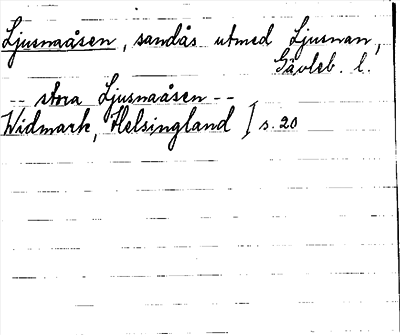 Ljusnaåsen, sandås utmed Ljusnan,
Gävleb. l.
-- stora Ljusnaåsen --
Widmark, Helsingland ] s. 20